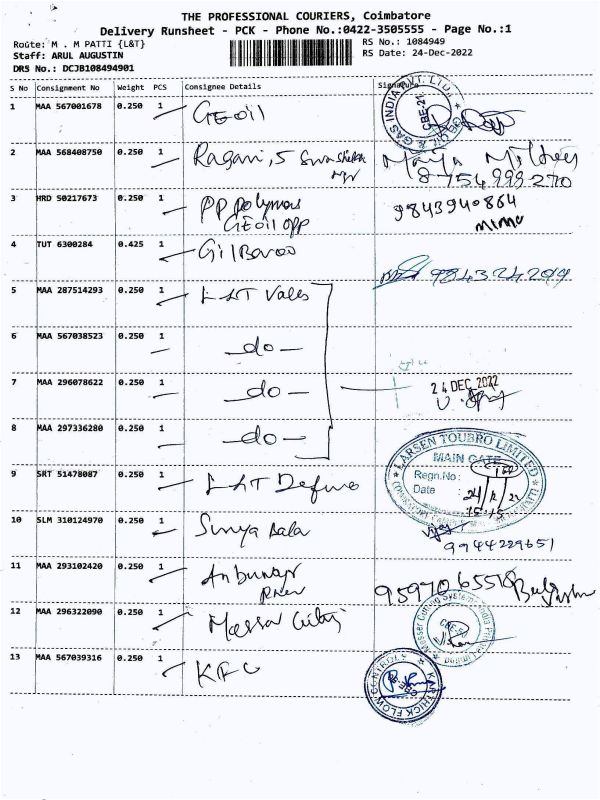 THE PROFESSIONAL COURIERS, Coimbatore
Delivery Runsheet - PCK - Phone No.:0422-3505555 - Page No.:1
Route: M . M PATTI {L&T} RS No.: 1084949
Staff: ARUL AUGUSTIN RS Date: 24-Dec-2022
DRS No.: DCJB108494901
S No Consignment No Weight PCS Consignee Details Signature
1 MAA 567001678 0.250 1 GEOil
2 MAA 568408750 0.250 1 Ragavi, 5
8754999270
3 HRD 50217673 0.250 1 PP polymers 9843940864
GEoil opp
4 TUT 6300284 0.425 1
5 MAA 287514293 0.250 1 L&T Valves
6 MAA 567038523 0.250 1 -do-
7 MAA 296078622 0.250 1 -do- 24 DEC 2022
8 MAA 297336280 0.250 1 -do-
LARSEN TOUBRO LIMITED
MAIN GATE
Regn.No:
Date :
9 SRT 51478087 0.250 1 L&T Defence
10 SLM 310124970 0.250 1 Surya Bala
9944229651
11 MAA 293102420 0.250 1
12 MAA 296322090 0.250 1 Messer
13 MAA 567039316 0.250 1 KFC
KARTHICK FLOW CONTROLS